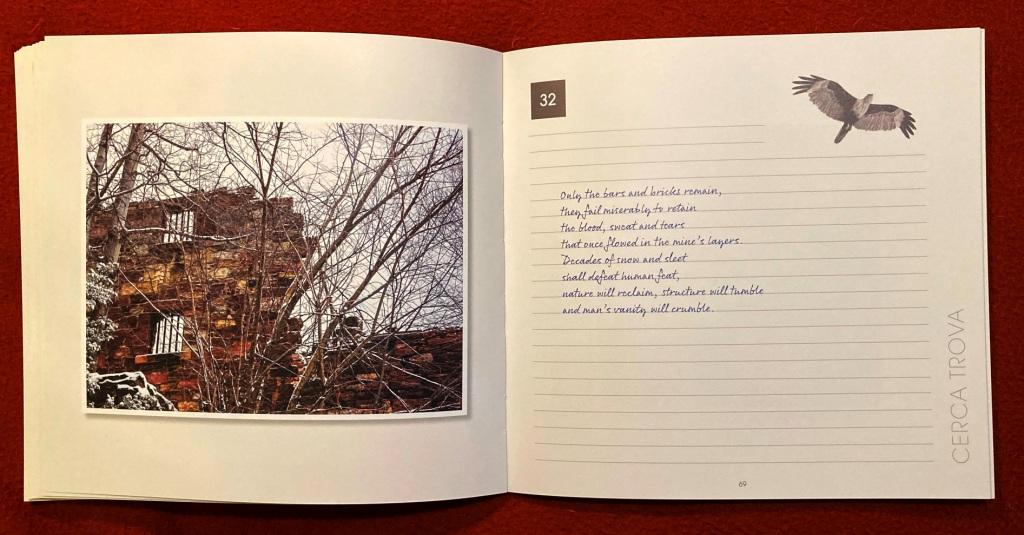 32
Only the bars and bricks remain,
they fail miserably to retain
the blood, sweat and tears
that once flowed in the mine's layers.
Decades of snow and sleet
shall defeat human feat,
nature will reclaim, structure will tumble
and man's vanity will crumble.
CERCA TROVA
69